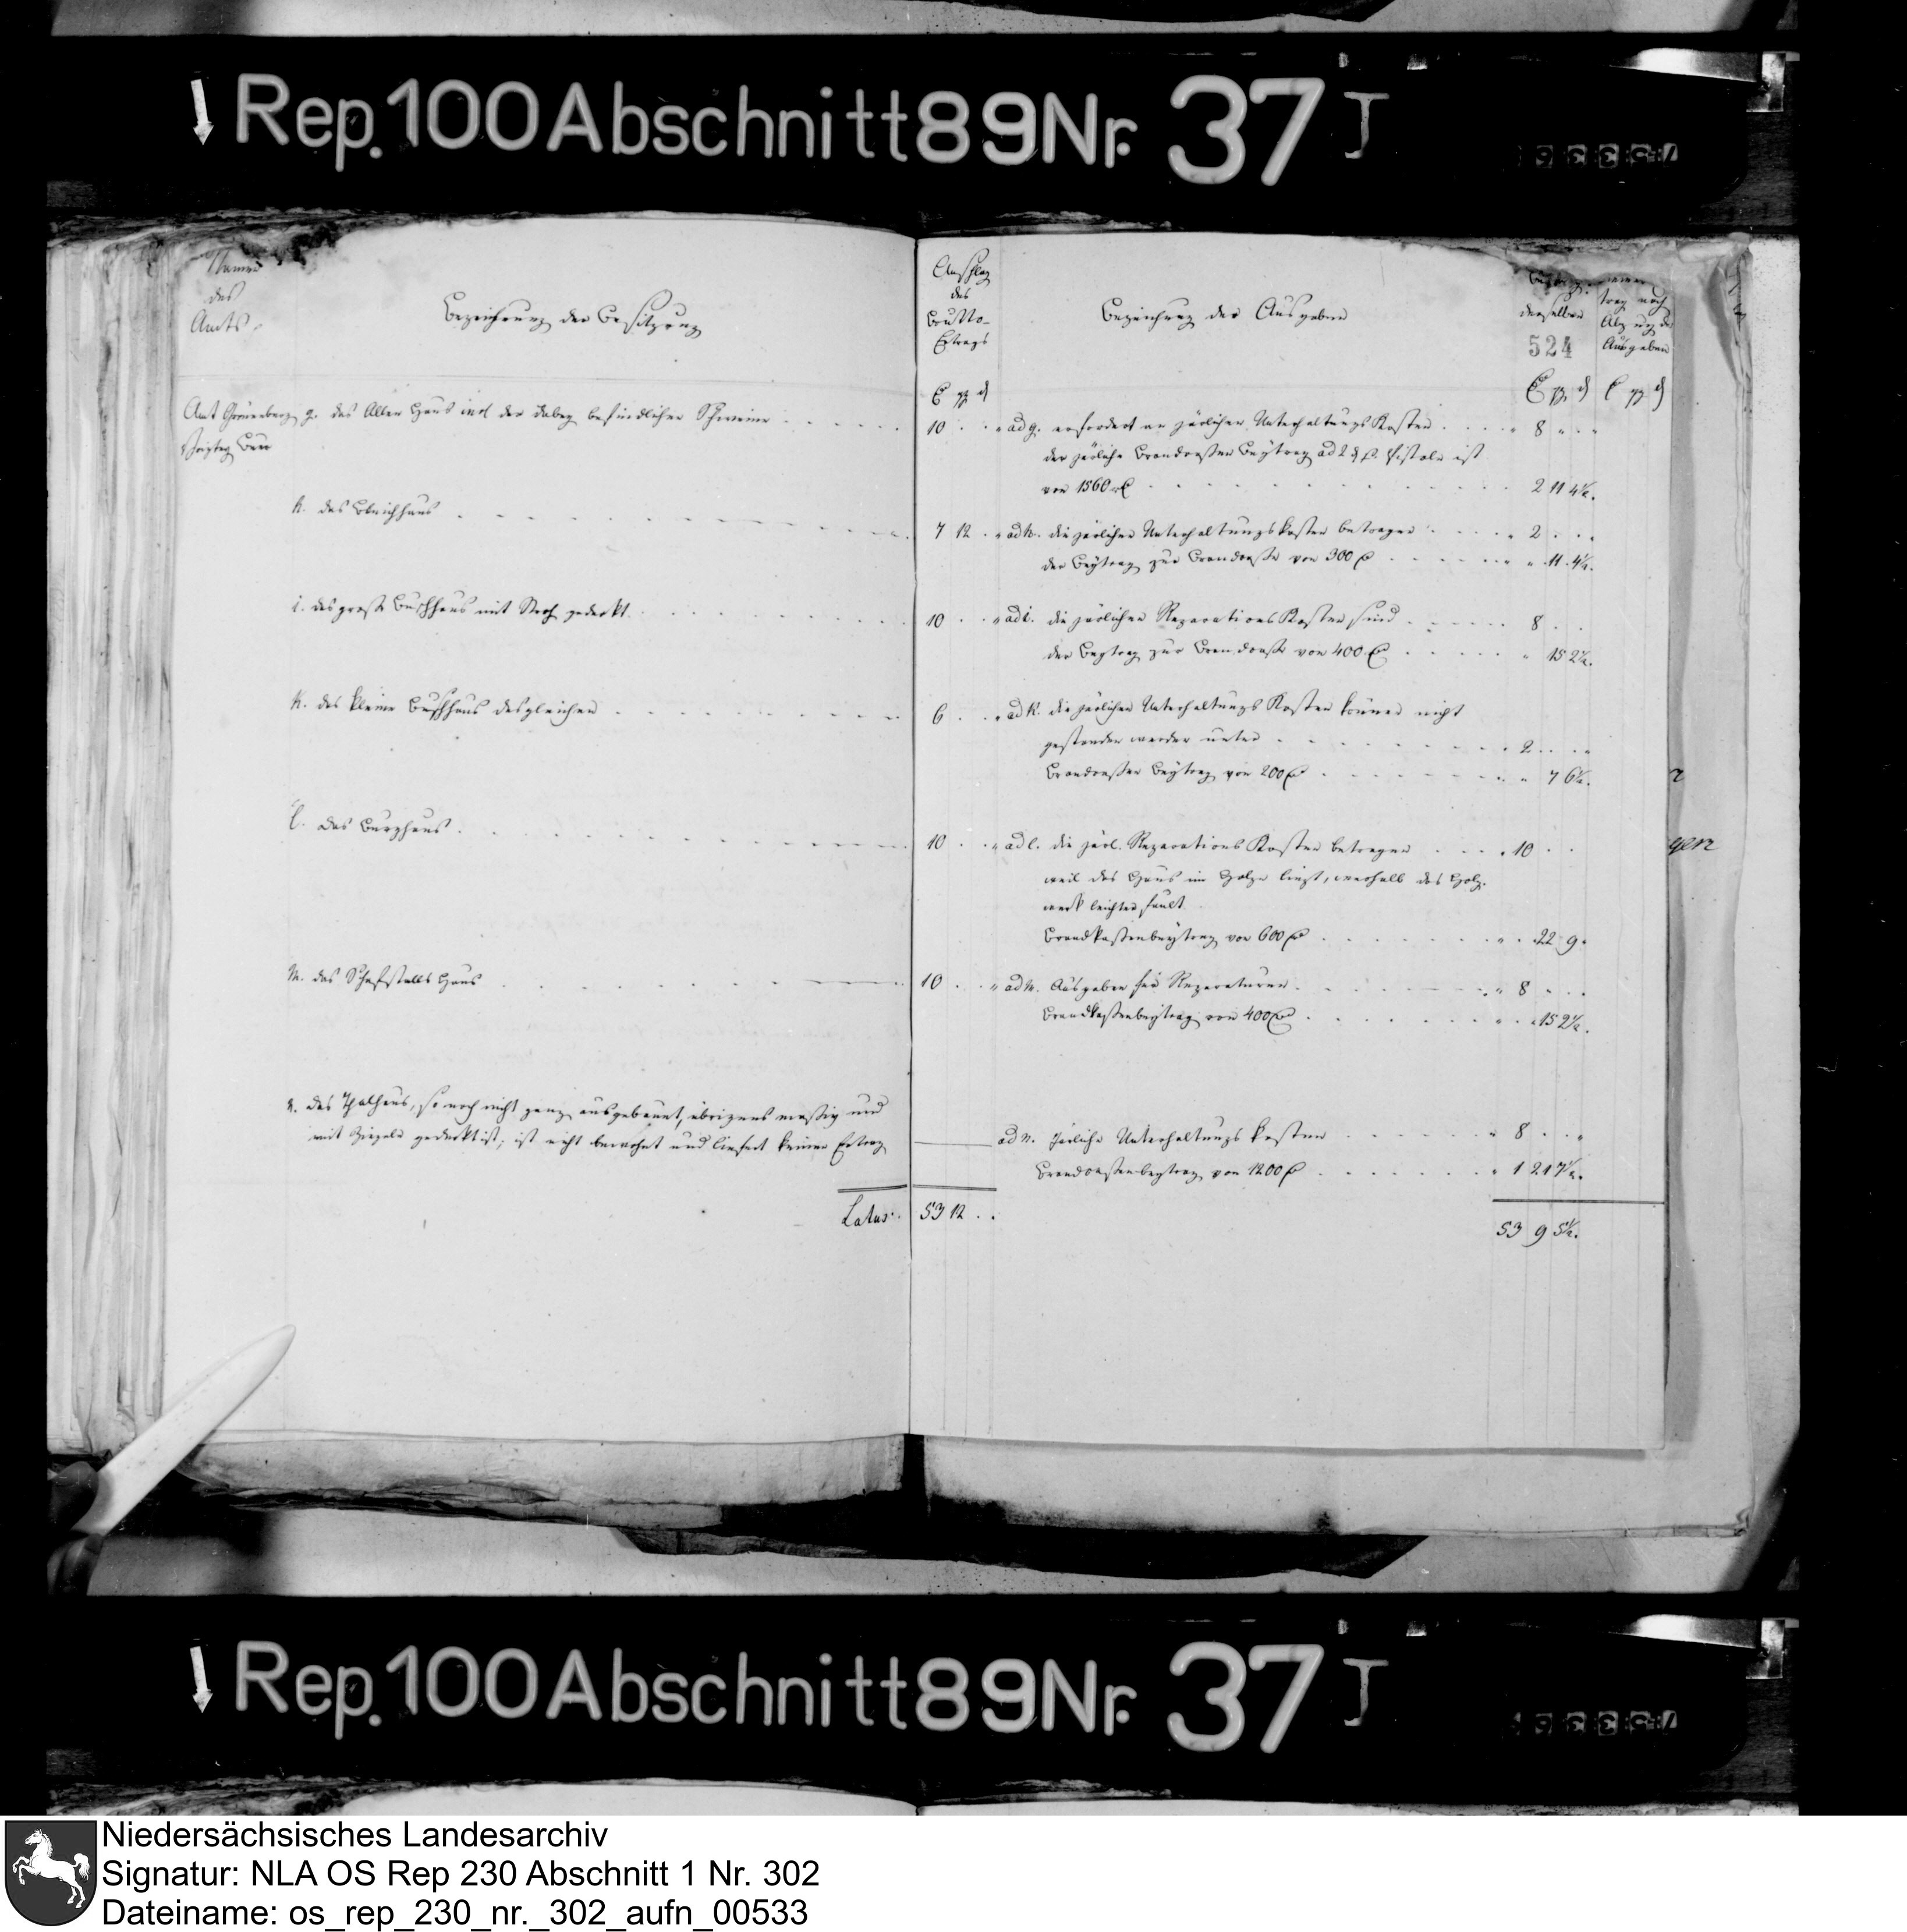 Rep. 100 Abschnitt 89 Nr. 37 J
Namen
des
Amts.
Bezeichnung der Besitzung
Anschlag
des
Brutto-
Ertrags
Bezeichnung der Ausgaben
derselben
524
trag nach
Abzug der
Ausgaben
Amt Grönenberg g. das Alte Haus incl der dabey befindlichen Scheune
10
ad g. erfordert an järlichen Unterhaltungs Kosten 8
der järliche Brandcassen Beytrag ad Pistole ist
von 1560 2 11 4½.
h. das Bleichhaus
7 12
ad h. die järlichen Unterhaltungskosten betragen 2
der Beytrag zur Brandcasse von 300 11 4½.
i. das große Buschhaus mit Stroh gedeckt
10
ad i. die järlichen Reparations Kosten sind 8
der Beytrag zur Brandcasse von 400 15 2½.
k. das kleine Buschhaus desgleichen
6
ad k. die järlichen Unterhaltungs Kosten können nicht
gestanden werden unter 2
Brandcassen Beytrag von 200 7 6½.
l. das Berghaus
10
ad l. die järl. Reparations Kosten betragen 10
weil das Haus im Holze liegt, weshalb das Holz-
werk leichter fault
Brandkassenbeytrag von 600 22 9
m. das Schafstalls Haus
10
ad m. Ausgaben für Reparaturen 8
Brandkassenbeytrag von 400 15 2½.
n. das Thalhaus, so noch nicht ganz ausgebauet, übrigens massiv und
mit Ziegeln gedeckt ist; ist nicht bewohnt und liefert keinen Ertrag
ad n. Järliche Unterhaltungs kosten 8
Brandcassenbeytrag von 1200 1 21 7½.
Latus 53 12
53 9 5½.
Rep. 100 Abschnitt 89 Nr. 37 J
Niedersächsisches Landesarchiv
Signatur: NLA OS Rep 230 Abschnitt 1 Nr. 302
Dateiname: os_rep_230_nr._302_aufn_00533